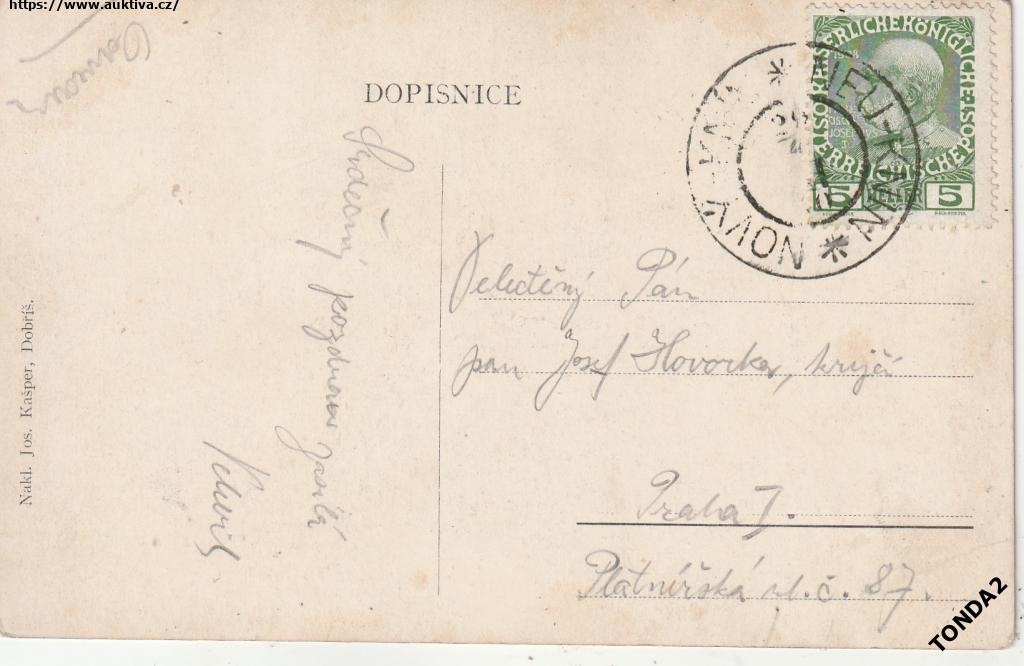 https://www.auktiva.cz/
DOPISNICE
KAISERLICHE KÖNIGLICHE ÖSTERREICHISCHE POST
5 HELLER 5
NEU-KNIN * NOVÝ KNÍN *
Srdečný pozdrav zasílá
Velectěný Pán
pan Josef Hovorka, krejčí
Praha I.
Platnéřská ul. č. 87.
Nakl. Jos. Kašper, Dobříš.
TONDA2